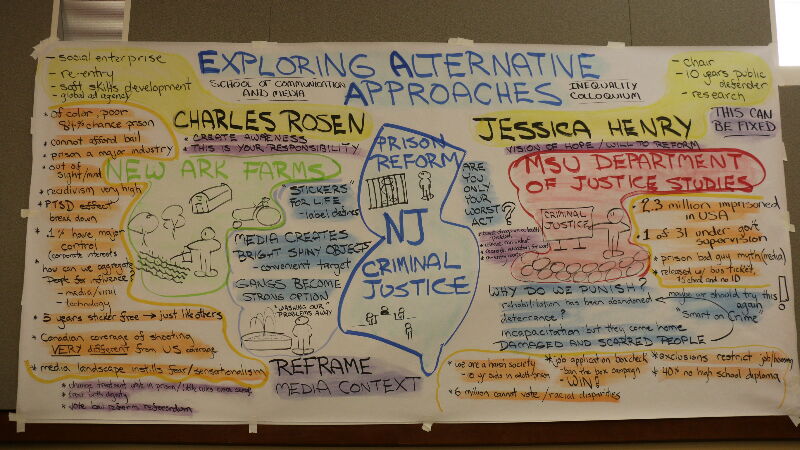 EXPLORING ALTERNATIVE
APPROACHES
SCHOOL OF COMMUNICATION
AND MEDIA
INEQUALITY
COLLOQUIUM
- social enterprise
- re-entry
- soft skills development
- global ad agency
CHARLES ROSEN
* CREATE AWARENESS
* THIS IS YOUR RESPONSIBILITY
* of color, poor
chance prison
* cannot afford bail
* prison a major industry
* out of
sight/mind
* recidivism very high
* PTSD effect
break down
* 1% have major
control
(corporate interests)
* how can we aggregate
people for influence?
- media/viral
- technology
* 5 years sticker free → just like others
* Canadian coverage of shooting
VERY different from U.S. coverage
* media landscape instills fear/sensationalism
* vote bail reform referendum
NEW ARK FARMS
"STICKERS"
FOR LIFE
- label defines
MEDIA CREATES
BRIGHT SHINY OBJECTS
- convenient target
GANGS BECOME
STRONG OPTION
"WASHING OUR
PROBLEMS AWAY"
REFRAME
MEDIA CONTEXT
PRISON
REFORM
NJ
CRIMINAL
JUSTICE
ARE
YOU
ONLY
YOUR
WORST
ACT?
JESSICA HENRY
VISION OF HOPE / WILL TO REFORM
- chair
- 10 years public
defender
- research
THIS CAN
BE FIXED
MSU DEPARTMENT
OF JUSTICE STUDIES
CRIMINAL
JUSTICE
* 2.3 million imprisoned
in USA
* 1 of 31 under gov't
supervision
* prison bad guy myth (media)
* released w/ bus ticket,
and no ID
WHY DO WE PUNISH?
rehabilitation has been abandoned
deterrence?
incapacitation but they come home
DAMAGED AND SCARRED PEOPLE
maybe we should try this
again!
"Smart on Crime"
* we are a harsh society
* job application box check
- ban the box campaign
- WIN!
* exclusions restrict job/housing
* 40% no high school diploma
* 6 million cannot vote / racial disparities